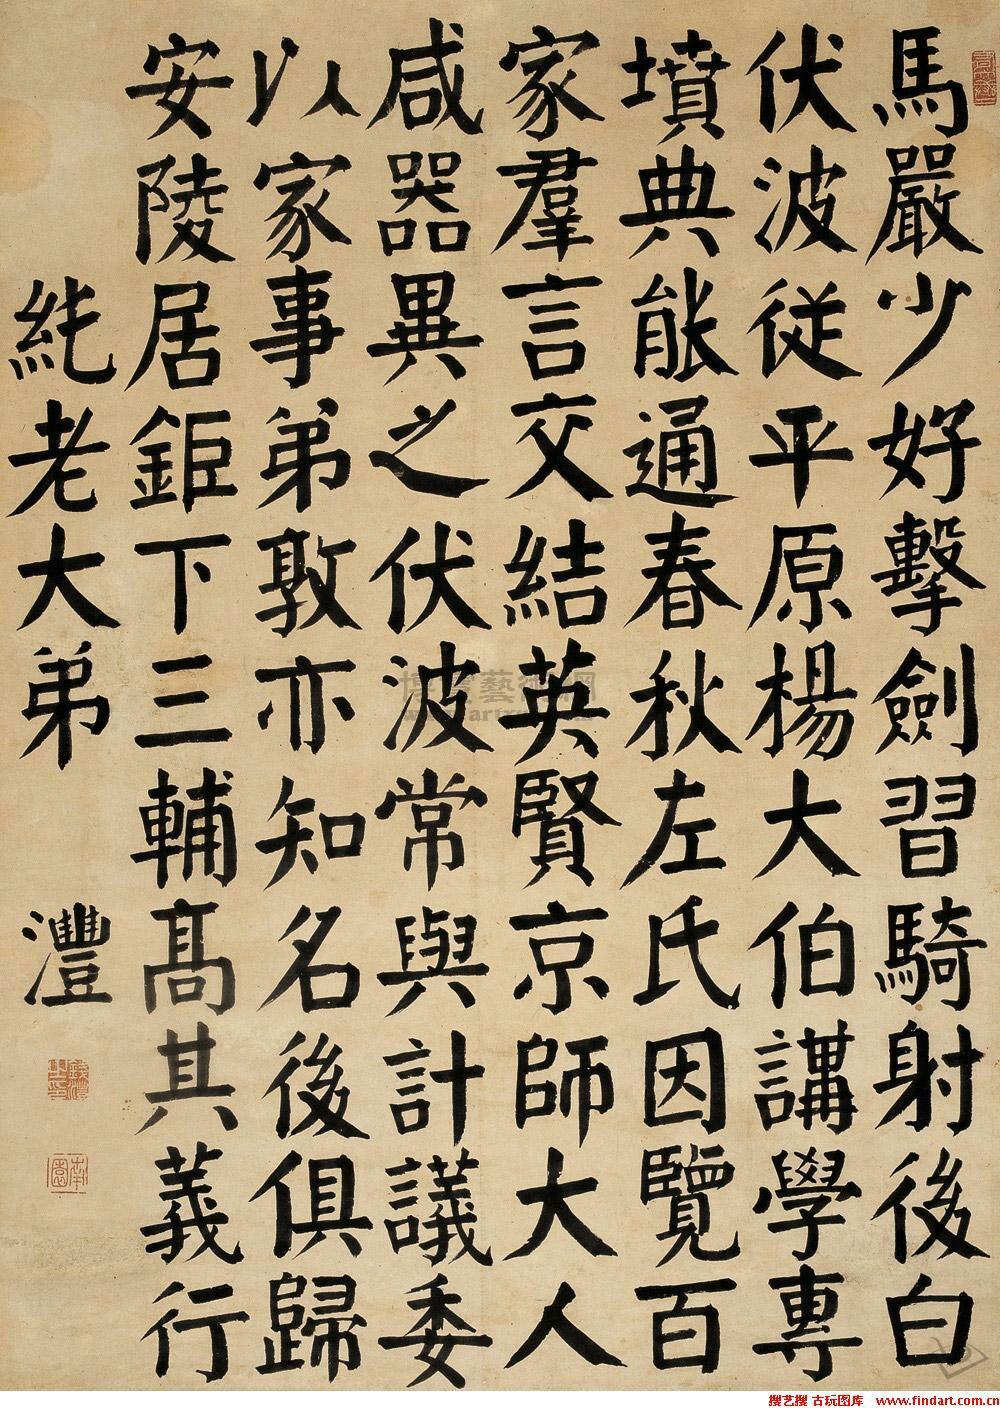 馬嚴少好擊劍習騎射後白
伏波從平原楊大伯講學專
墳典能通春秋左氏因覽百
家羣言交結英賢京師大人
咸器異之伏波常與計議委
以家事弟敦亦知名後俱歸
安陵居鉅下三輔高其義行
紞老大弟 灃
南園
博寶藝術網
搜艺搜 古玩图库 www.findart.com.cn